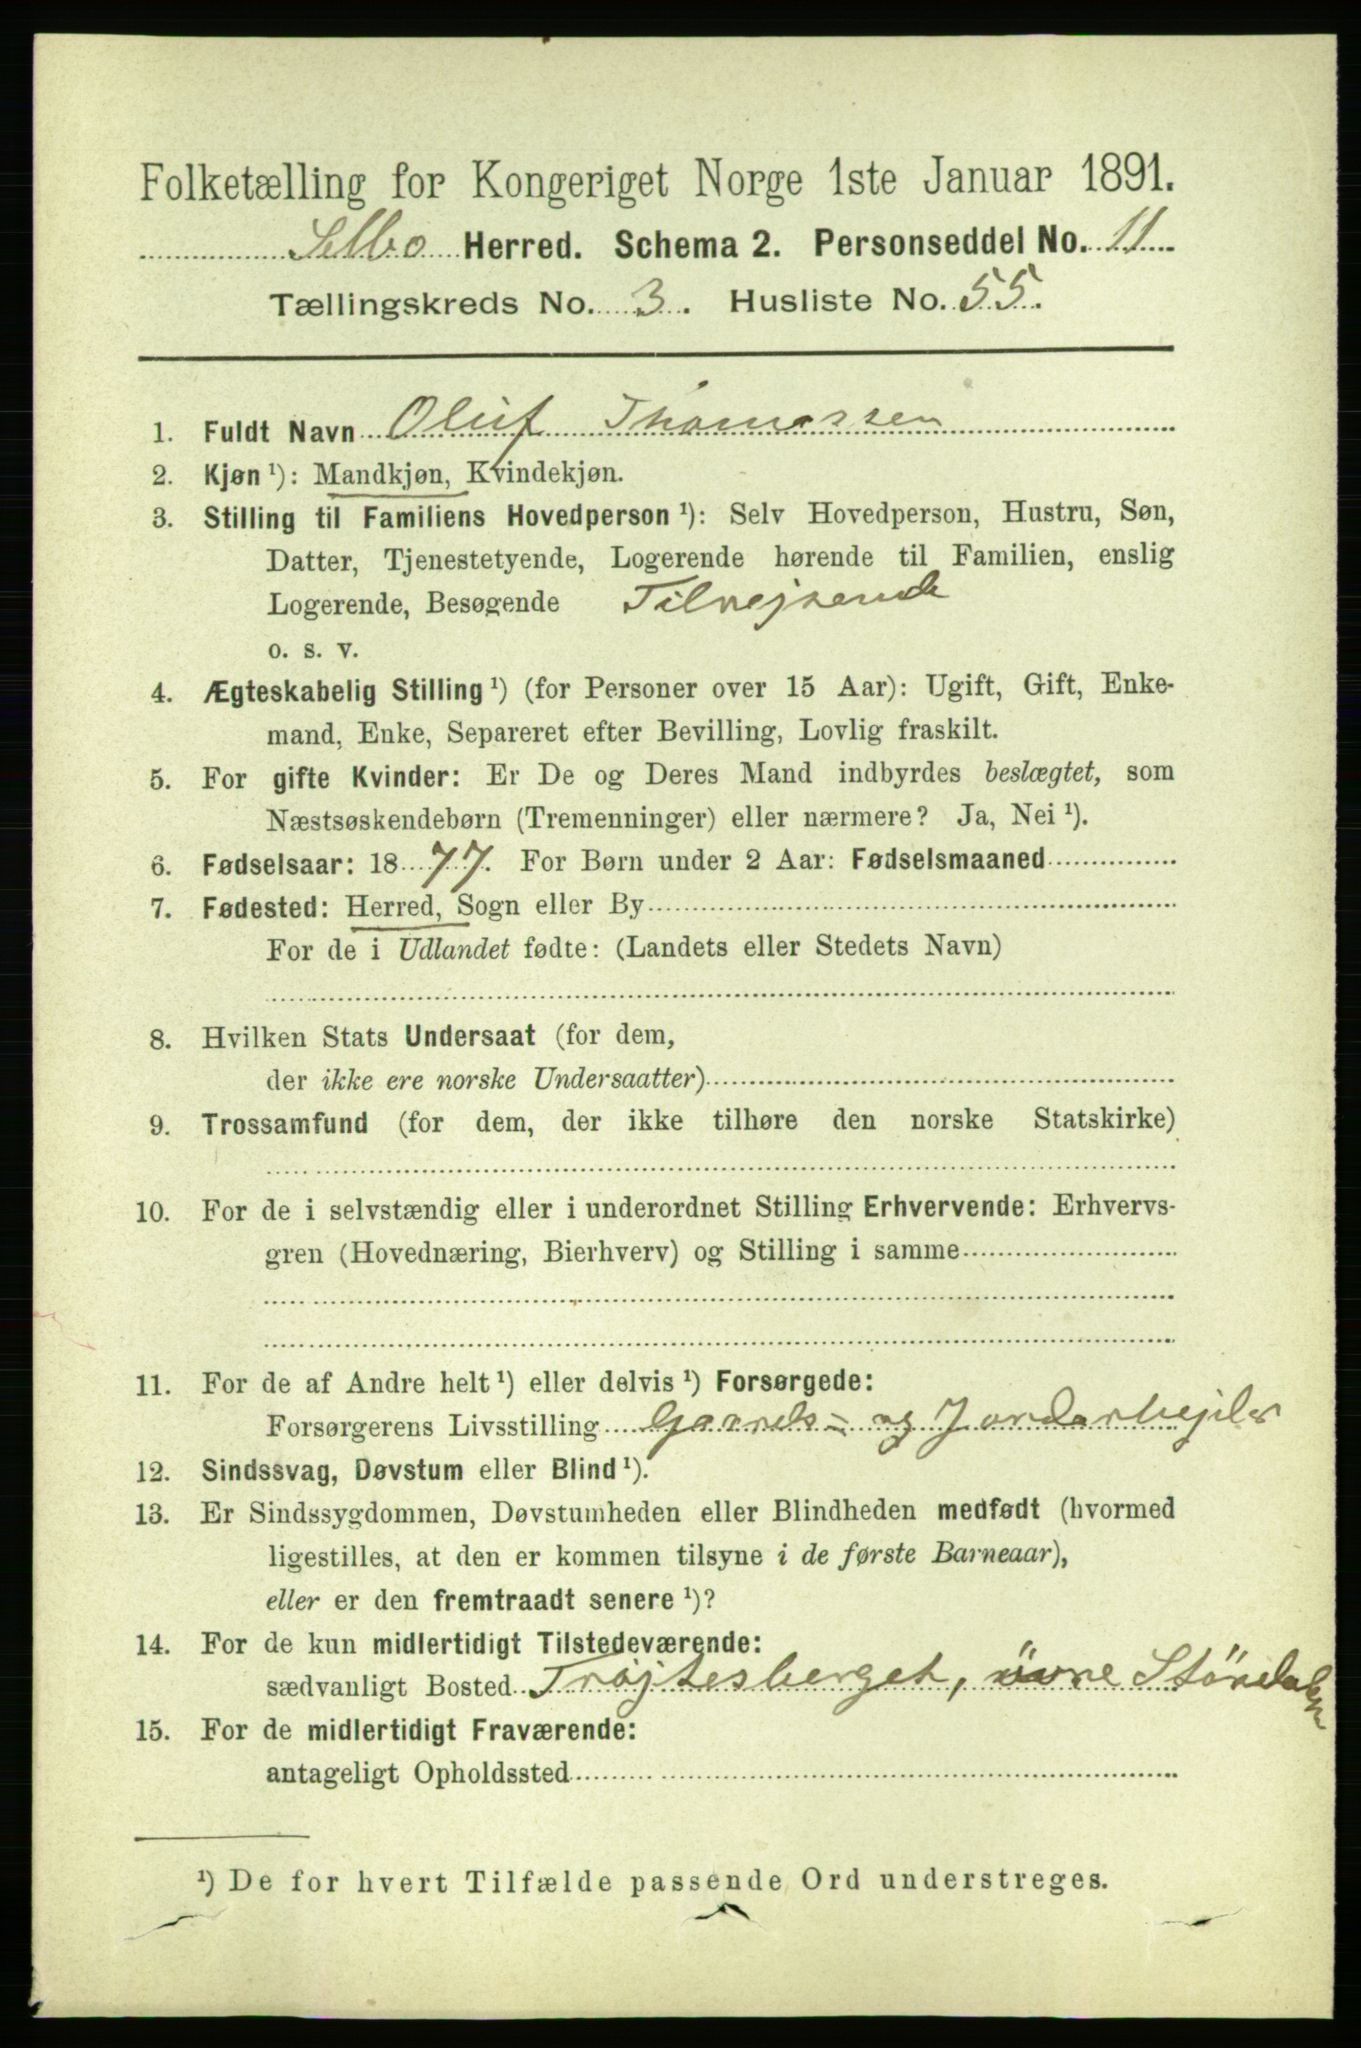 Folketælling for Kongeriget Norge 1ste Januar 1891.
Selbo Herred. Schema 2. Personseddel No. 11
Tællingskreds No. 3. Husliste No. 55.
1. Fuldt Navn Oluf Thomassen
2. Kjøn ¹): Mandkjøn, Kvindekjøn.
3. Stilling til Familiens Hovedperson ¹): Selv Hovedperson, Hustru, Søn,
Datter, Tjenestetyende, Logerende hørende til Familien, enslig
Logerende, Besøgende Tilrejsende
o. s. v.
4. Ægteskabelig Stilling ¹) (for Personer over 15 Aar): Ugift, Gift, Enke-
mand, Enke, Separeret efter Bevilling, Lovlig fraskilt.
5. For gifte Kvinder: Er De og Deres Mand indbyrdes beslægtet, som
Næstsøskendebørn (Tremenninger) eller nærmere? Ja, Nei ¹).
6. Fødselsaar: 1877. For Børn under 2 Aar: Fødselsmaaned
7. Fødested: Herred, Sogn eller By
For de i Udlandet fødte: (Landets eller Stedets Navn)
8. Hvilken Stats Undersaat (for dem,
der ikke ere norske Undersaatter)
9. Trossamfund (for dem, der ikke tilhøre den norske Statskirke)
10. For de i selvstændig eller i underordnet Stilling Erhvervende: Erhvervs-
gren (Hovednæring, Bierhverv) og Stilling i samme
11. For de af Andre helt ¹) eller delvis ¹) Forsørgede:
Forsørgerens Livsstilling Gaards- og Jordarbejder
12. Sindssvag, Døvstum eller Blind ¹).
13. Er Sindssygdommen, Døvstumheden eller Blindheden medfødt (hvormed
ligestilles, at den er kommen tilsyne i de første Barneaar),
eller er den fremtraadt senere ¹)?
14. For de kun midlertidigt Tilstedeværende:
sædvanligt Bosted Trøjtesberget, övre Stördalen
15. For de midlertidigt Fraværende:
antageligt Opholdssted
¹) De for hvert Tilfælde passende Ord understreges.